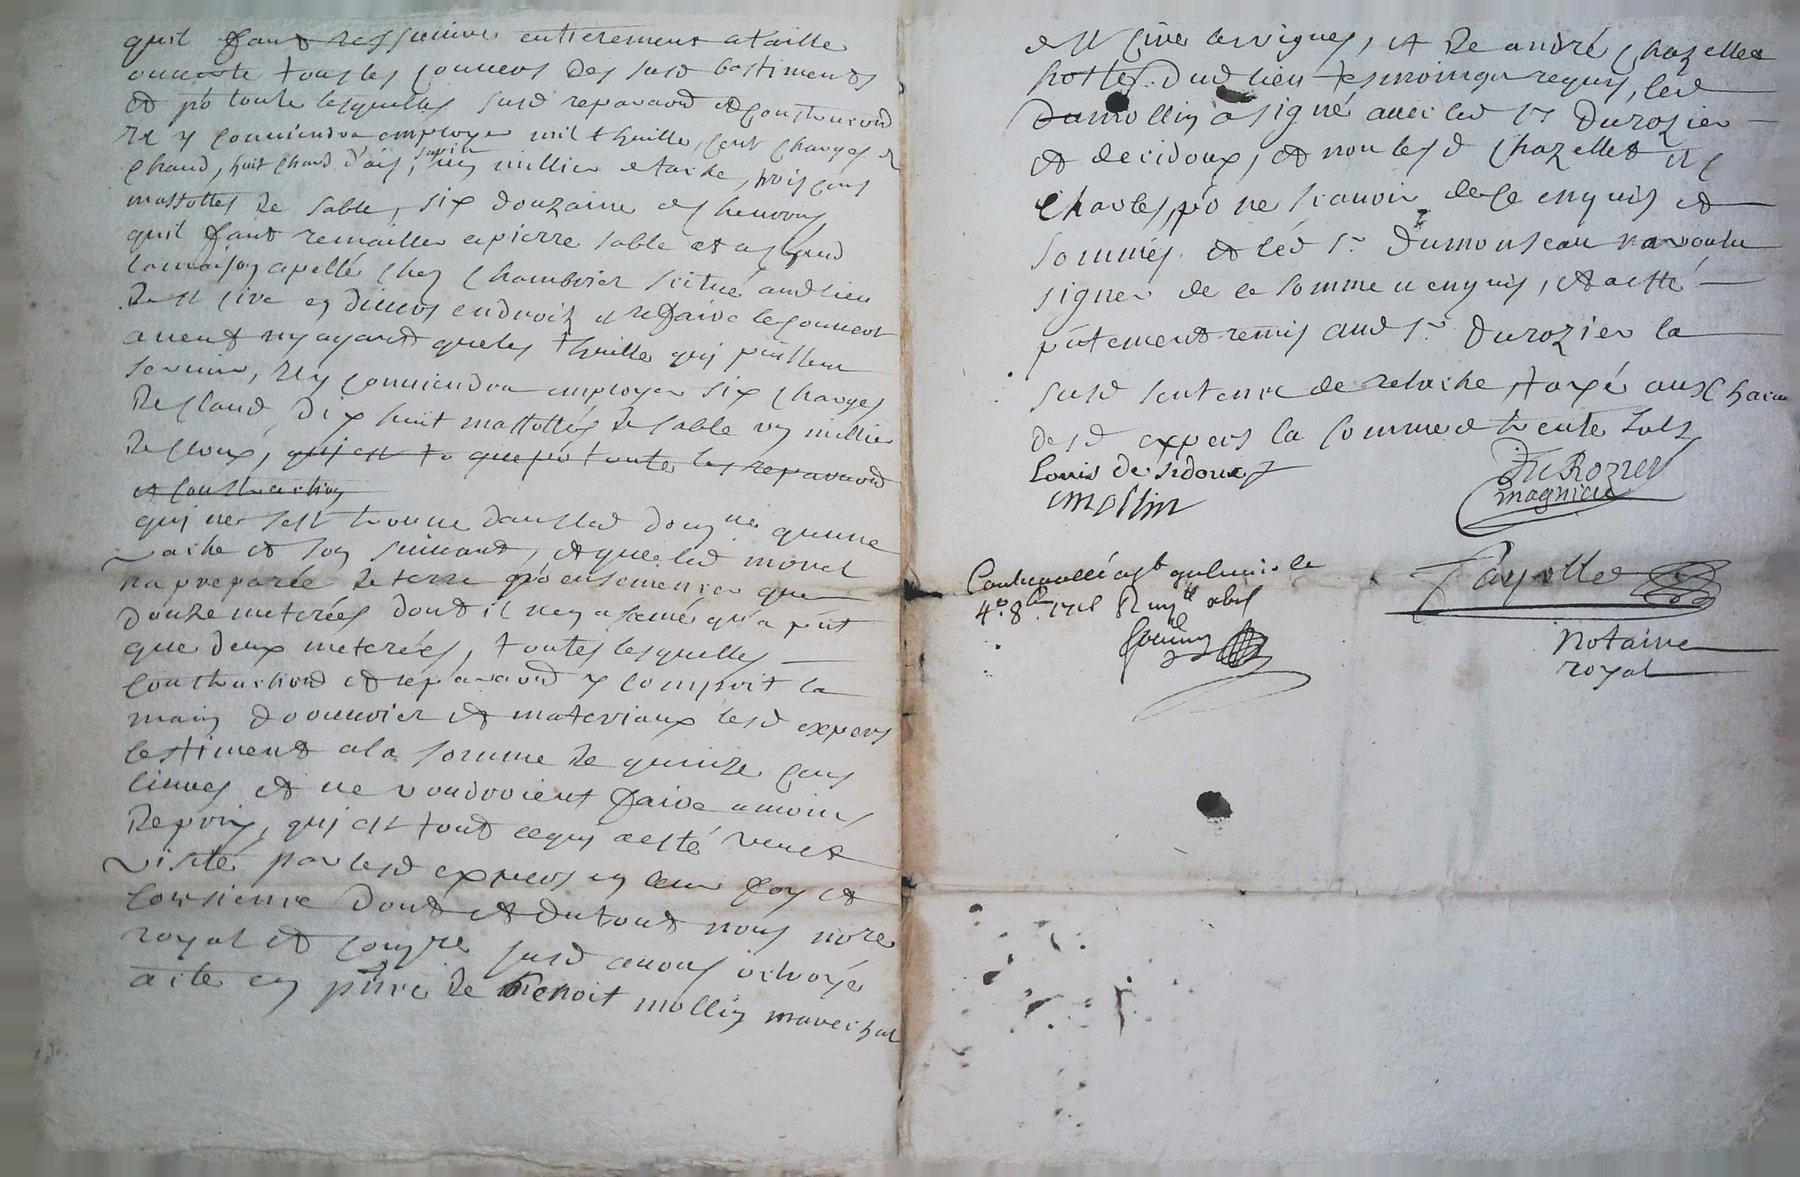 quil faut entierement ataille
tous les couvers des susd bastiments
et po toute lesquelles susd reparaond et construond
Il y conviendra employer mil thuille, cent charges de
chaud, huit chard d'ais, un millier etache, trois cens
mattottes de sable, six douzaine
quil faut remailler a pierre sable et
la maison apellé chez Chambrier scitué aud lieu
de St Cire en divers endroit et refaire le couvert
avent ny ayant que les thuille qui puissent
servir, Il y conviendra employer six charges
de chaud, dix huit mattottes de sable un millier
de cloux, qui est to que po toutes les reparaond
et construction
qui ne sest trouve dans led dom^ne qu'une
vache et son suivant, et que led morel
na preparée de terre po ensemencer que
douze meterées dont il ney a semé qu'a
que deux meterées, toutes lesquelles
construond et reparaond y compris la
main douvrier et materiaux lesd expers
lestiment a la somme de quinze cens
livres et ne voudroient faire a moins
de prix, qui est tout ce qui a esté veu et
visité par lesd expers en leur foy et
consience dont et du tout nous no^re
royal et com^re susd avons octroyé
acte en p^nce de Benoit mollin marechal
de St Cire les vignes, et de andré Chazelles
hostes dud lieu tesmoings requis, led
mollin a signé avec led Sr Durozier
et de cidoux, et non lesd Chazelles et
Charles, po ne scavoir de ce enquis et
sommés. et led Sr Dumonseau na voulu
signer de ce somme et enquis, et a esté
p^ntement remis aud Sr Durozier la
susd sentence de relache, taxé aux
desd expers la somme de trente sols
Louis de sidoux
mollin
Du Rozier
magnieu
Controllé a st galmier le
4e 8bre
Payolle
notaire
royal